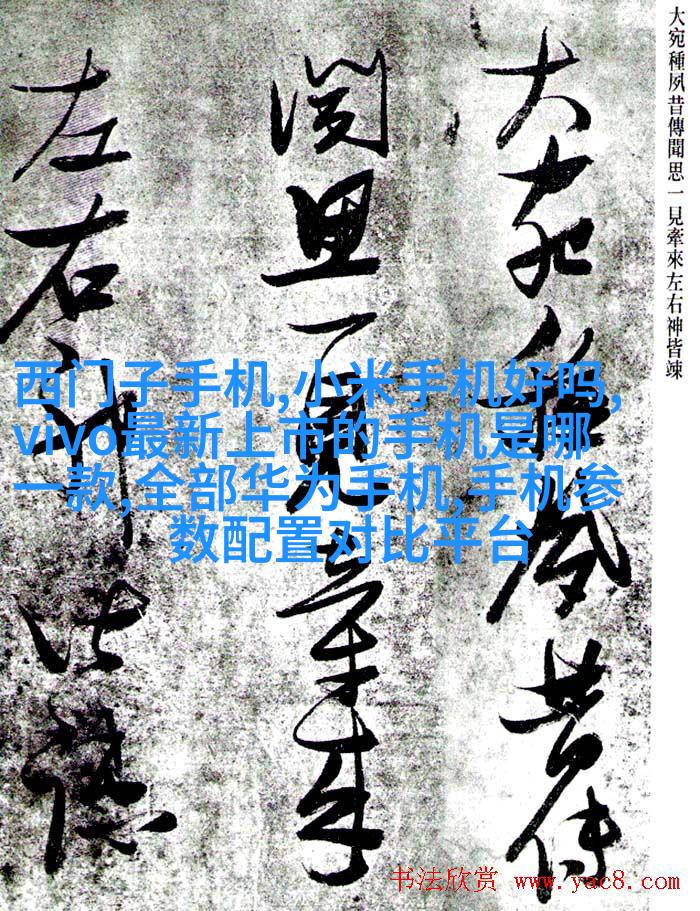 大宛種夙昔傳聞思一見牽來左右神皆竦
大宛種夙昔傳
聞思一見牽来
左右神皆竦
西门子手机,小米手机好吗,
vivo最新上市的手机是哪
一款,全部华为手机,手机参
数配置对比平台
书法欣赏 www.yac8.com